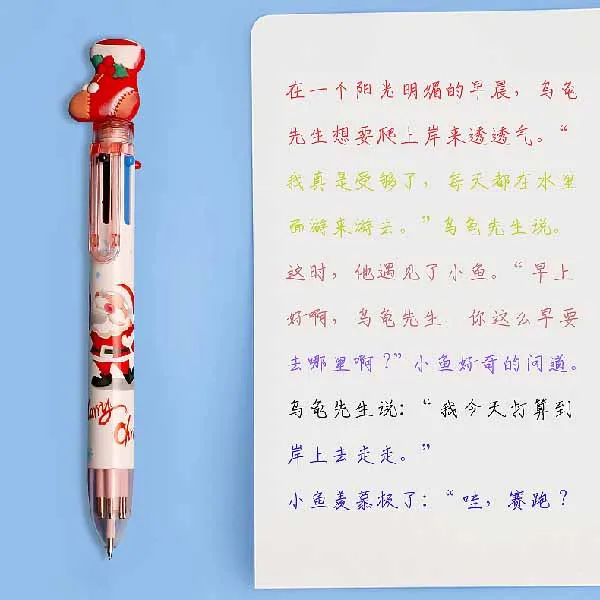 在一个阳光明媚的早晨，乌龟
先生想要爬上岸来透透气。“
我真是受够了，每天都在水里
面游来游去。”乌龟先生说。
这时，他遇见了小鱼。“早上
好啊，乌龟先生 你这么早要
去哪里啊？”小鱼好奇的问道。
乌龟先生说：“我今天打算到
岸上去走走。”
小鱼羡慕极了：“哇，赛跑？
Merry